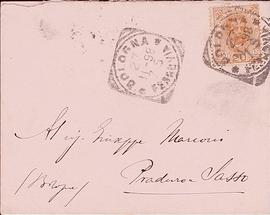 BOLOGNA
FERROVIA
27
11-98
BOLOGNA
Al Sig. Giuseppe Marconi
Praduro-Sasso
(Bologna)